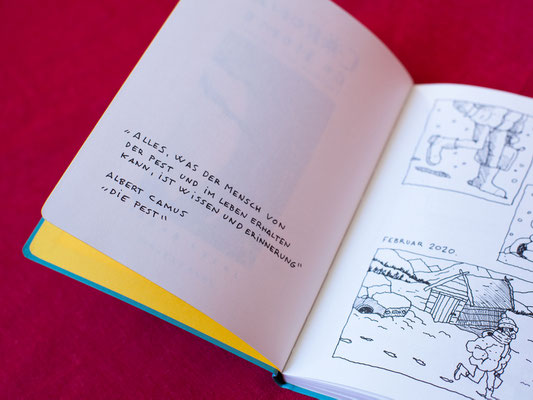 „ALLES, WAS DER MENSCH VON
DER PEST UND IM LEBEN ERHALTEN
KANN, IST WISSEN UND ERINNERUNG“
ALBERT CAMUS
„DIE PEST“
FEBRUAR 2020.